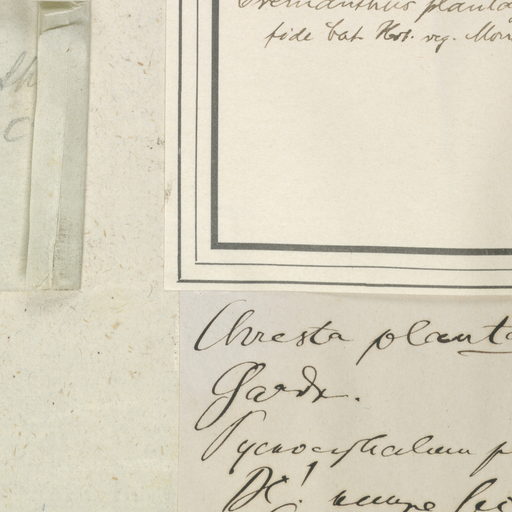 Eremanthus planta
fide Cat. Hrb. reg. Mon
Chresta planta
Gardn.
Pycnocephalum p
DC!